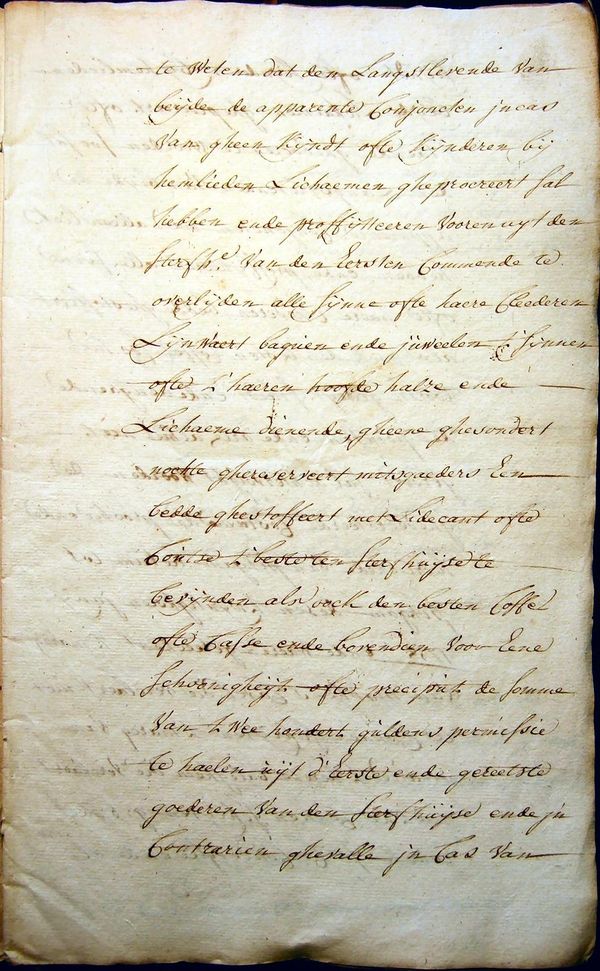 te Weten dat den Langstlevende van
beijde de apparente Conjoncten jn cas
Van gheen Kijndt ofte Kijnderen bij
hemlieden Lichaemen gheprocreert sal
hebben ende proffijtteeren Vooren uijt den
sterfh.e Van den Eersten Commende te
overlijden alle sijnne ofte haere Cleederen
Lijnwaert baguen ende juweelen t' sijnnen
ofte t' haeren hoofde halze ende
Lichaeme dienende, gheene ghesondert
nochte ghereserveert mitsgaeders Een
bedde ghestoffeert met Lidecant ofte
Coutse t' beste ten sterfhuijse te
bevijnden als oock den besten Coffer
ofte Casse ende bovendien Voor Eene
schoonigheijt ofte preciput de somme
Van twee hondert guldens permissie
te haelen uijt d' Eerste ende gereetste
goederen Van den sterfhuijse ende jn
Contrarien ghevalle jn Cas Van